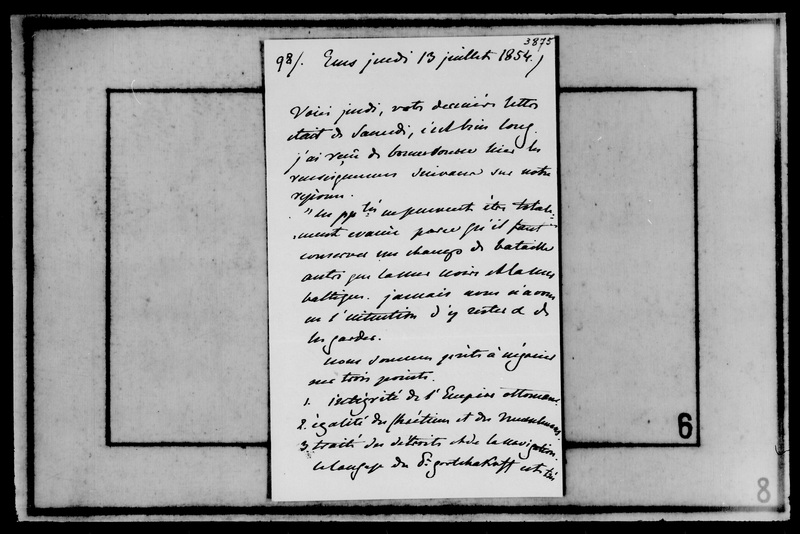 3875
98/. Ems jeudi 13 juillet 1854.
Voici jeudi, votre dernière lettre
était de Samedi, c'est bien long.
j'ai reçu de bonne source hier les
renseignemens suivans sur notre
réponse.
"les pptés ne peuvent être totale-
ment évacués parce qu'il faut
conserver un champ de bataille
autre que la mer noire et la mer
baltique. jamais nous n'avons
eu l'intention d'y rester & de
les garder.
nous sommes prêts à négocier
sur trois points.
1. intégrité de l'Empire ottoman
2. égalité des chrétiens et des Musulmans.
3. traité des détroits et de la navigation.
le langage du Pce gortchakoff est très
6
8